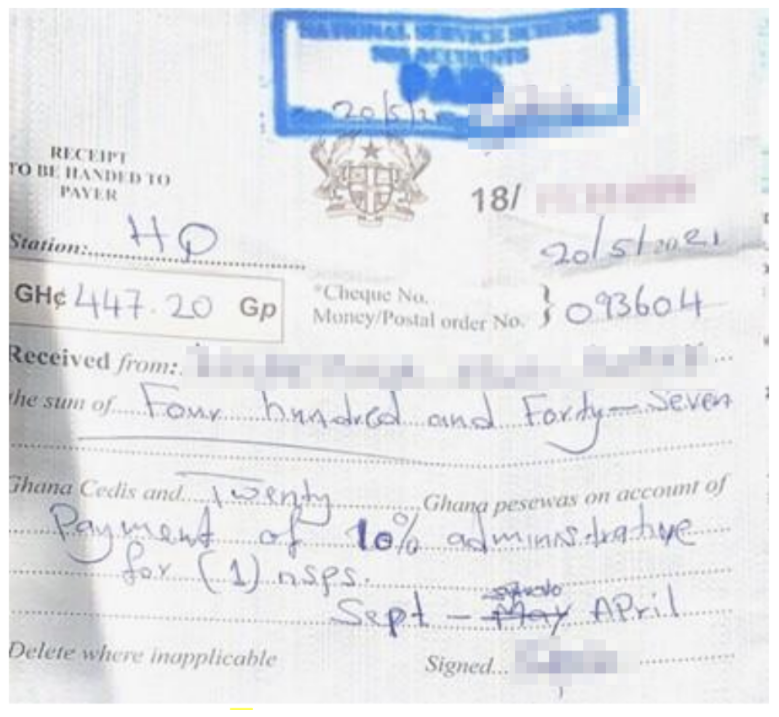 NATIONAL SERVICE SCHEME
NSS ACCOUNTS
PAID
20/5/2
RECEIPT
TO BE HANDED TO
PAYER
18/
Station:.......HQ
20/5/2021
GH¢ 447.20 Gp
*Cheque No.
Money/Postal order No. } 093604
Received from:
the sum of....Four hundred and Forty-Seven
Ghana Cedis and...Twenty......Ghana pesewas on account of
Payment of 10% administrative
for (1) nsps.
Sept - May April
Delete where inapplicable Signed...